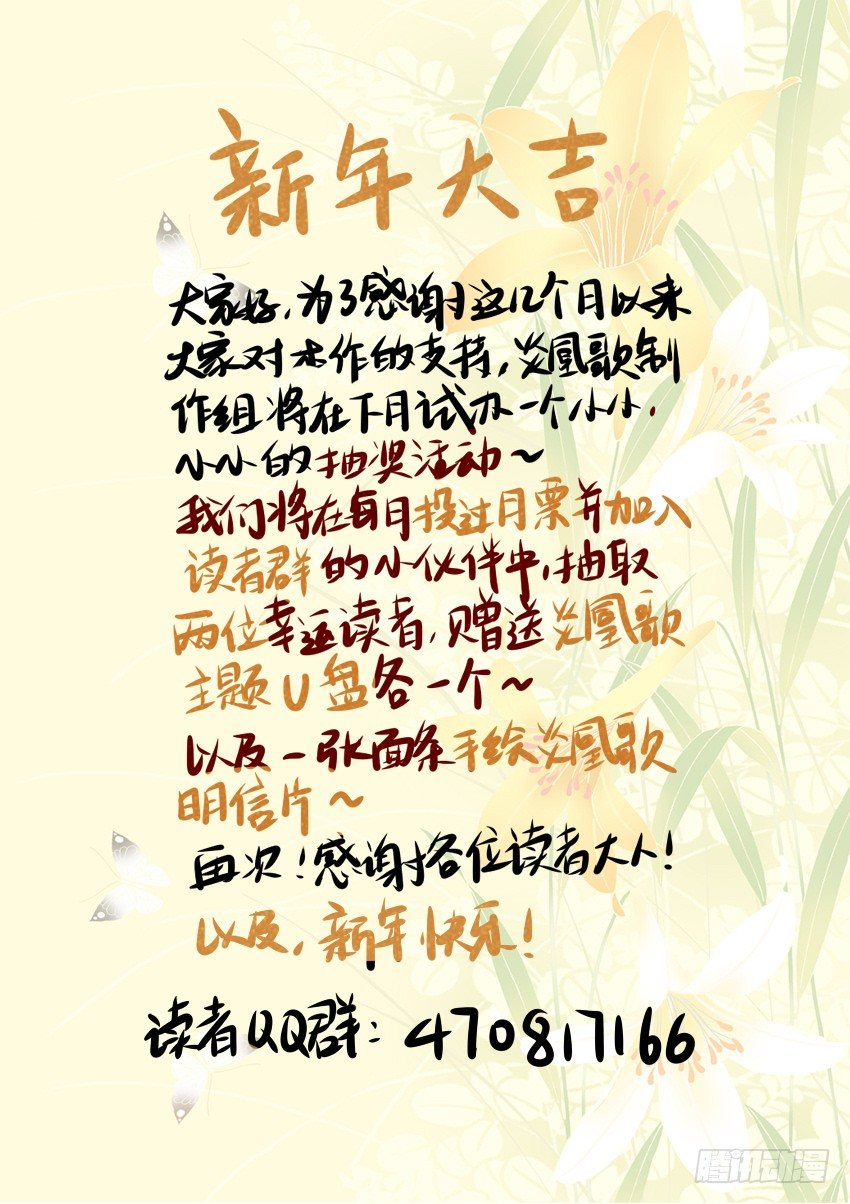 新年大吉
大家好,为了感谢这几个月以来
大家对本作的支持,炎凰歌制
作组将在下月试办一个小小,
小小的抽奖活动~
我们将在每月投过月票并加入
读者群的小伙伴中,抽取
两位幸运读者,赠送炎凰歌
主题U盘各一个~
以及一张面条手绘炎凰歌
明信片~
再次!感谢各位读者大人!
以及,新年快乐!
读者QQ群:470817166
腾讯动漫